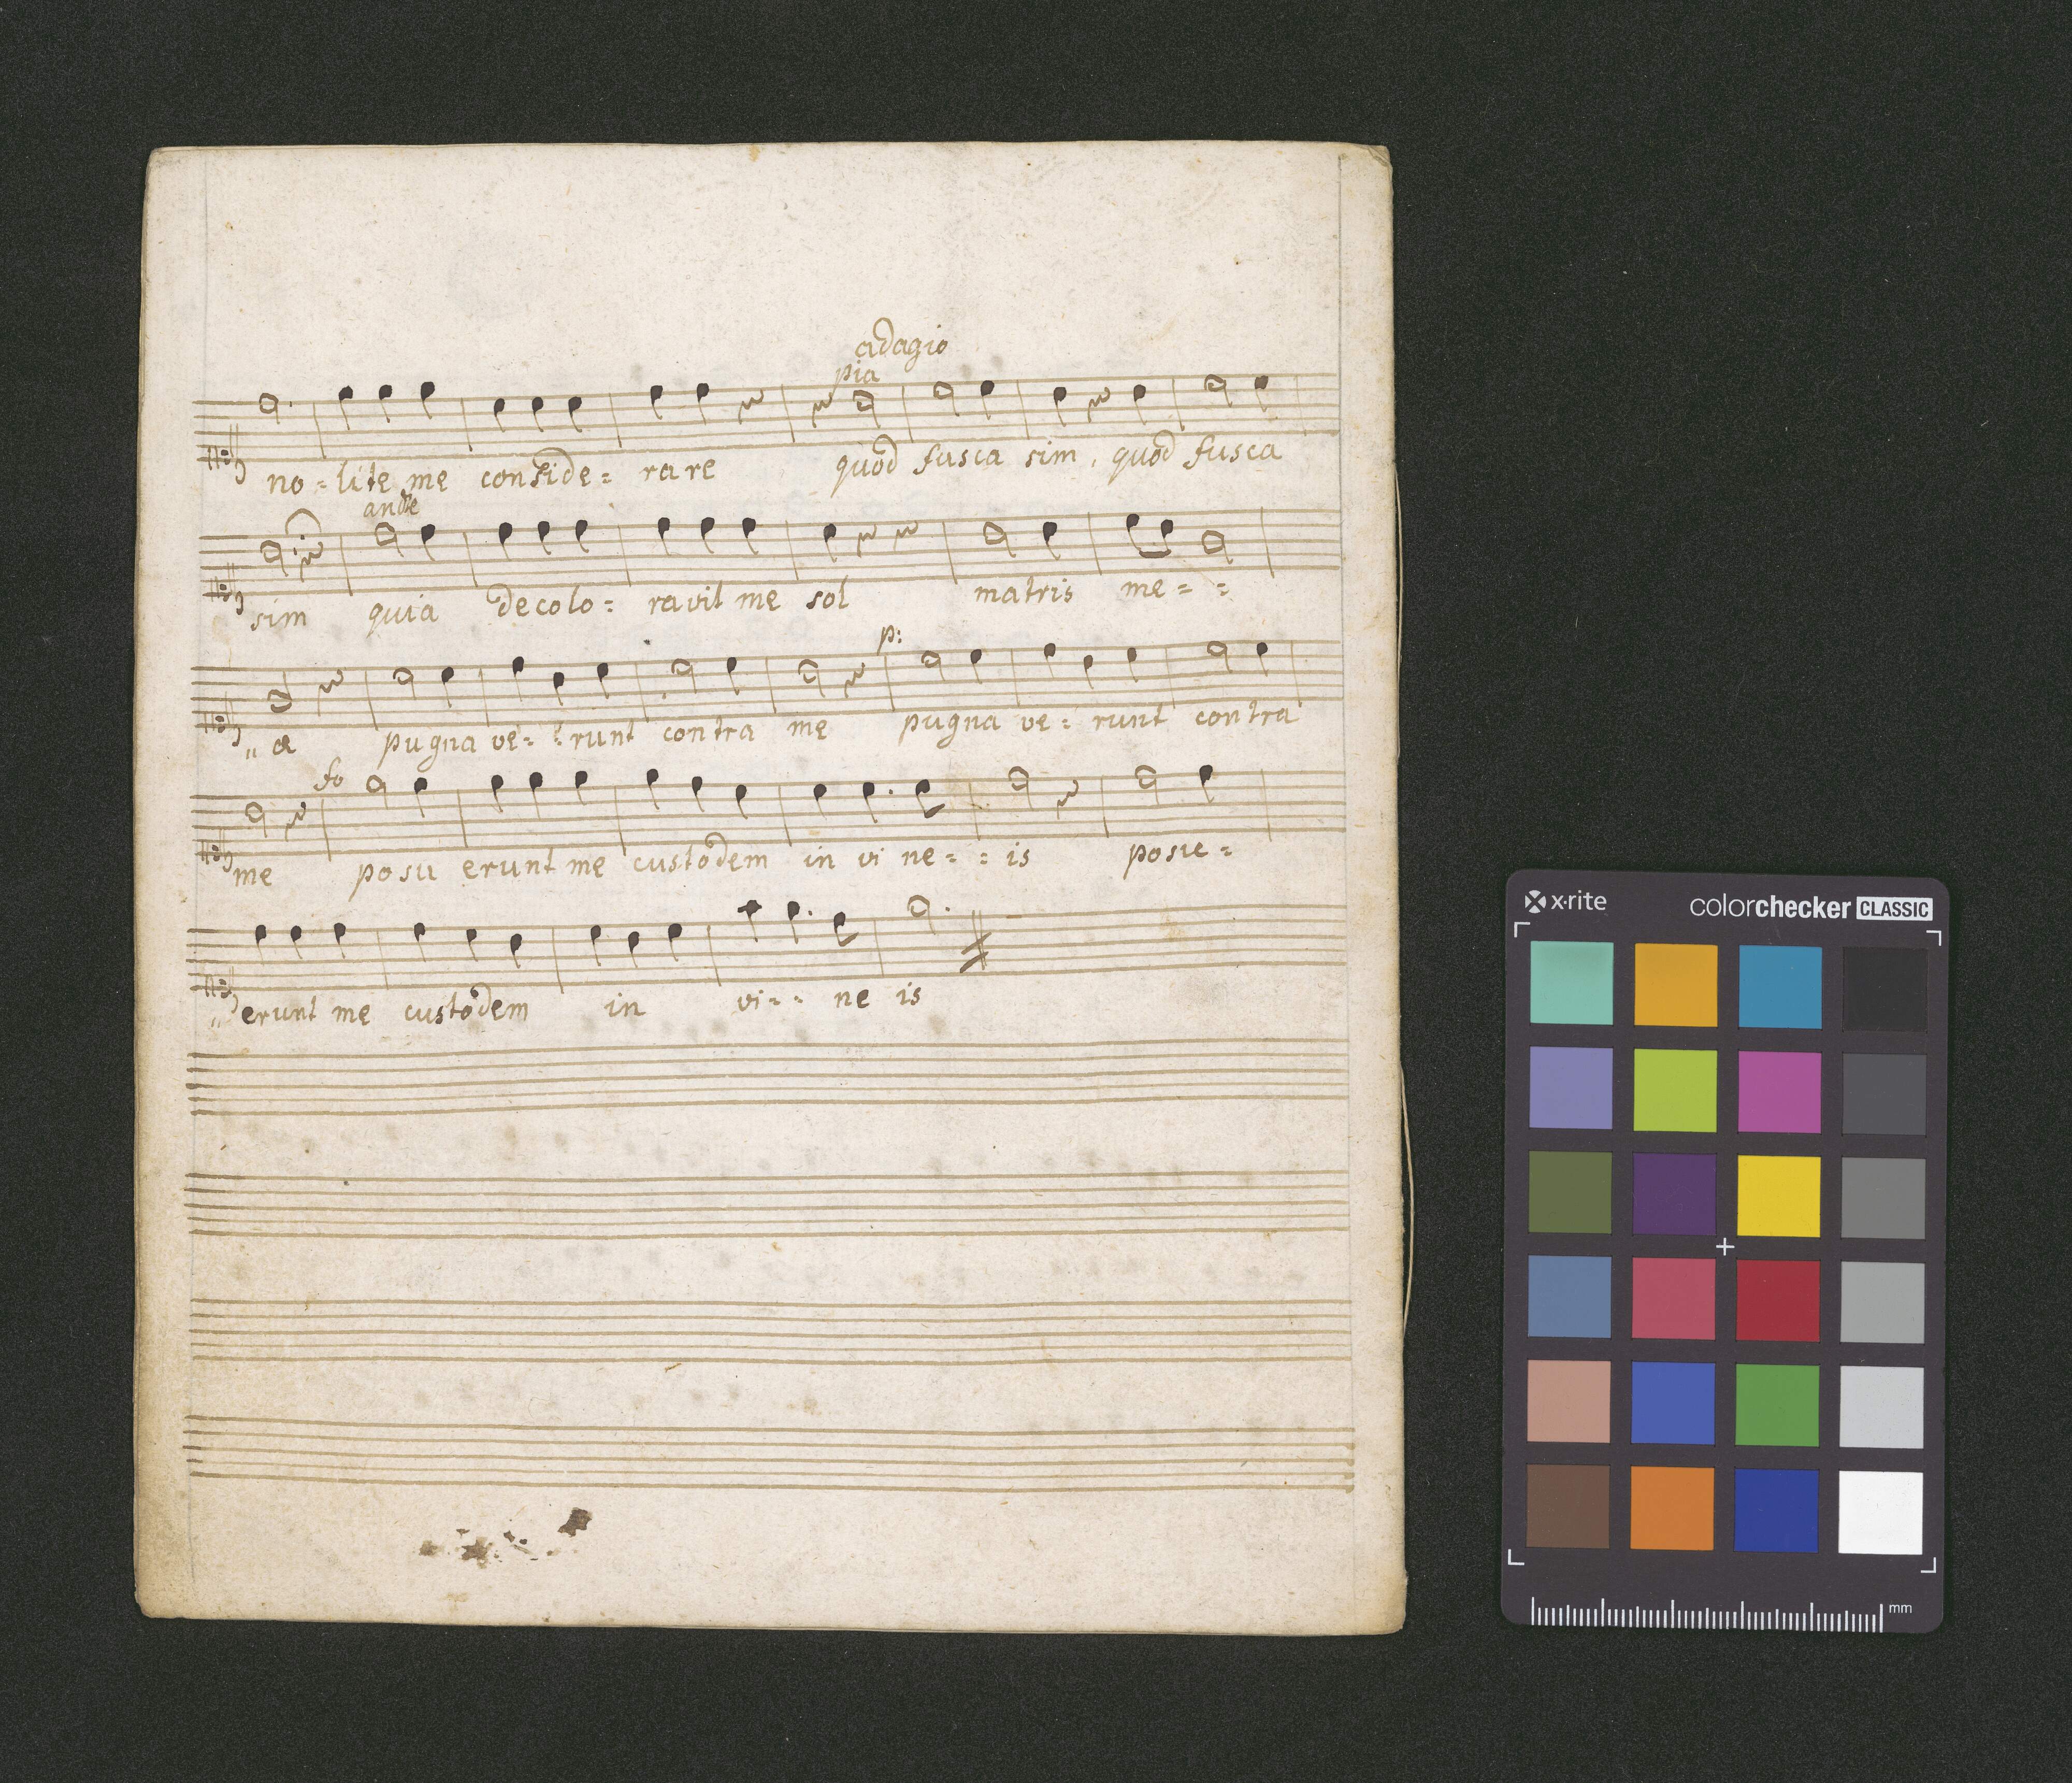 adagio
pia
no = lite me conside = rare quod fusca sim, quod fusca
andte
sim quia decolo = ravit me sol matris me = =
p:
„ æ pugna ve = = runt contra me pugna ve = runt contra
fo
me posu erunt me custodem in vi ne = = is posue =
„ erunt me custodem in vi = = ne is
x·rite colorchecker CLASSIC
mm